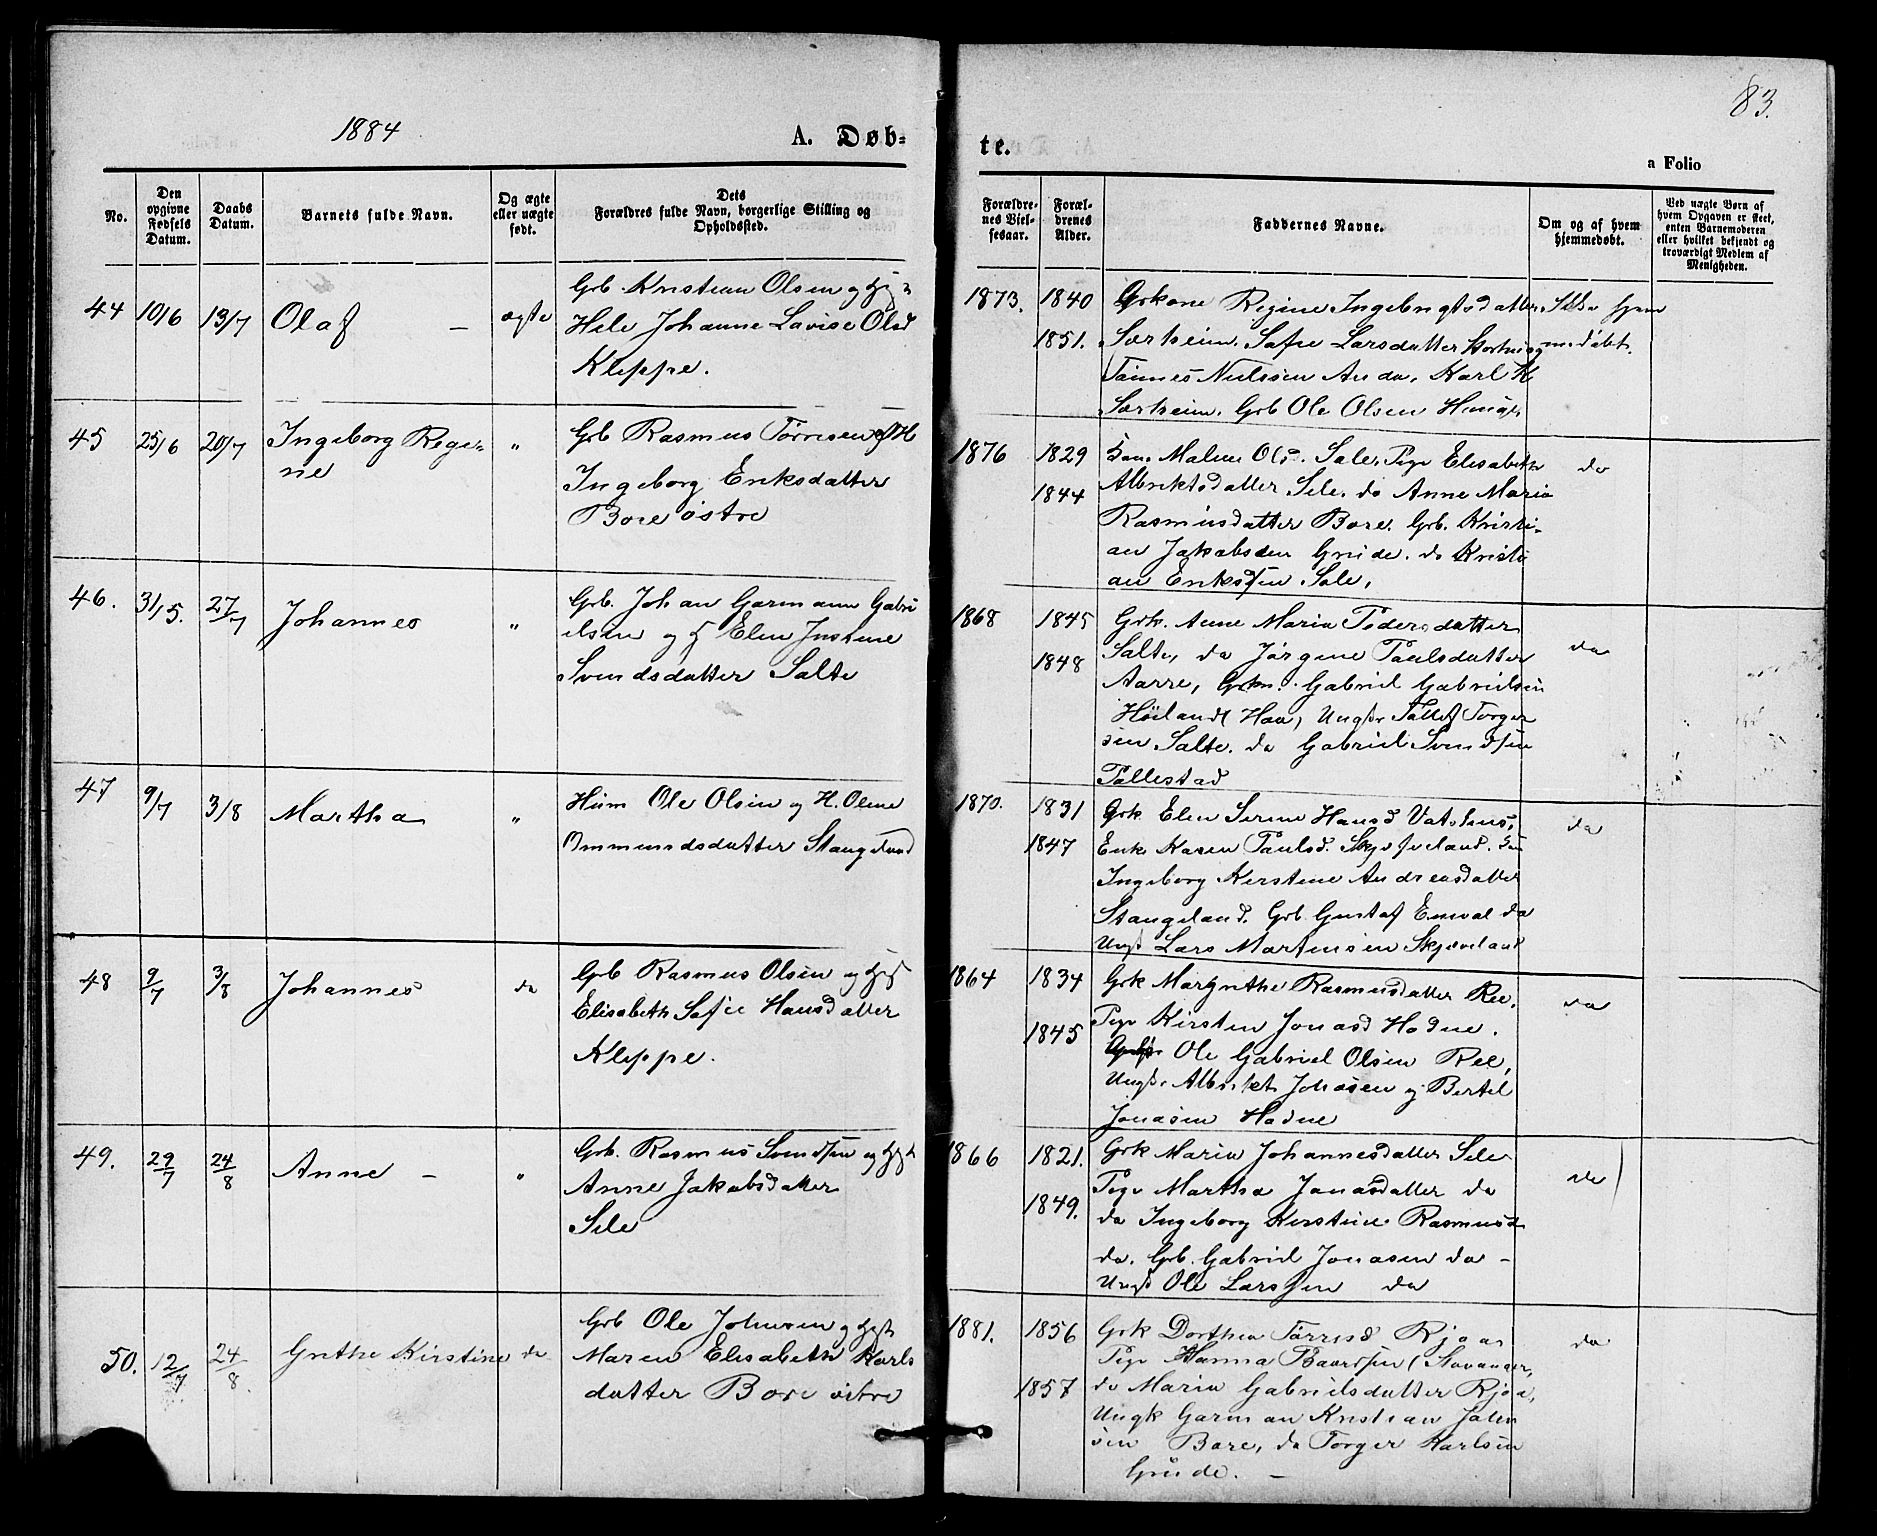 1884
A. Døb=
te.
83.
a Folio
No.
Den opgivne Fødsels Datum.
Daabs Datum.
Barnets fulde Navn.
Og ægte eller uægte født.
Dets Forældres fulde Navn, borgerlige Stilling og Opholdssted.
Forældrenes Vielsesaar.
Forældrenes Alder.
Faddernes Navne.
Om og af hvem hjemmedøbt.
Ved uægte Børn af hvem Opgaven er skeet, enten Barnemoderen eller hvilket bekjendt og troværdigt Medlem af Menigheden.
44 10/6 13/7 Olaf – ægte
Grb Kristian Olsen og
Hele Johanne Lovise Olsd
Kleppe.
1873. 1840
1851.
Grkone Regine Ingebrigtsdatter
Sørheim. Sofie Larsdatter
Tønnes Nielsen Anda, Karl K
Sørheim, Grb Ole Olsen
45 25/6 20/7 Ingeborg Regi=
ne "
Grb Rasmus Tørresen og H
Ingeborg Eriksdatter
Bore østre
1876 1829
1844
Malene Olsd. Sele, Pige Elisabeth
Albriktsdatter Sele. do Anne Maria
Rasmusdatter Bore. Grb. Kristi-
an Jakobsen Grude. do Kristi
an Eriksen Sele,
do
46. 31/5. 27/7 Johannes "
Grb. Johan Garmann Gabri
elsen og H Elen Justine
Svendsdatter Salte
1868 1845
1848
Grk. Anne Maria Pedersdatter
Salte, do Jørgine Paulsdatter
Aarre, Grkn. Gabriel Gabrielsen
Høiland Haa, Ungkr Tollef Torger
sen Salte. do Gabriel Svendsen
Pollestad
do
47 9/7 3/8 Martha "
Husm Ole Olsen og H. Oline
Ommundsdatter Stangeland
1870. 1831
1847
Grk Elen Serine Hansd Vatshus,
Enke Karen Paulsd. Skjæveland.
Ingeborg Kirstine Andreasdatter
Stangeland. Grb Gustaf Enval do
Ungk Lars Martinsen Skjæveland
do
48 9/7 3/8 Johannes do
Grb Rasmus Olsen og
Elisabeth Sofie Hansdatter
Kleppe.
1864 1834
1845
Grk Margrethe Rasmusdatter Ree.
Pige Kirsten Jonasd Hodne.
Ole Gabriel Olsen Ree,
Ungkr Albrikt Jonasen og Bertel
Jonasen Hodne
do
49. 29/7 24/8 Anne – "
Grb. Rasmus Svendsen og
Anne Jakobsdatter
Sele
1866 1821.
1849.
Grk Maria Johannesdatter Sele
Pige Martha Jonasdatter do
do Ingeborg Kirstine Rasmusd
do. Grb. Gabriel Jonasen do –
Ungk Ole Larssen do
do
50. 12/7 24/8 Grethe Kirstine do
Grb Ole Johnsen og
Maren Elisabeth Karls
datter Bore østre
1881. 1856
1857
Grk Dorthea Tørresd Rjoa
Pige Hanna Baardsen (Stavanger,
do Maria Gabrielsdatter Rjoa,
Ungk Garman Kristian John
sen Bore, do Torger Karlsen
Grude. –
do